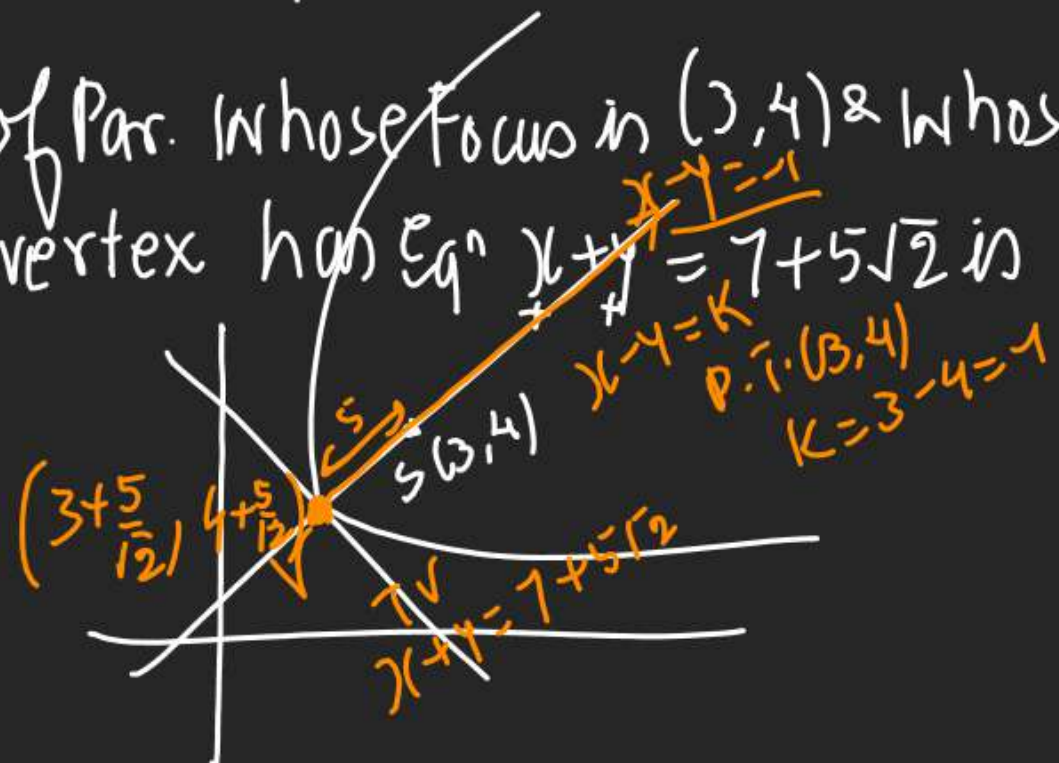 of Par. whose Focus is (3,4) & whos
vertex has Eqⁿ x+y = 7+5√2 is
x-y=-1
x-y=K
P.T. (3,4)
K=3-4=-1
5
S(3,4)
(3+5/√2, 4+5/√2)
V
TV
x+y=7+5√2